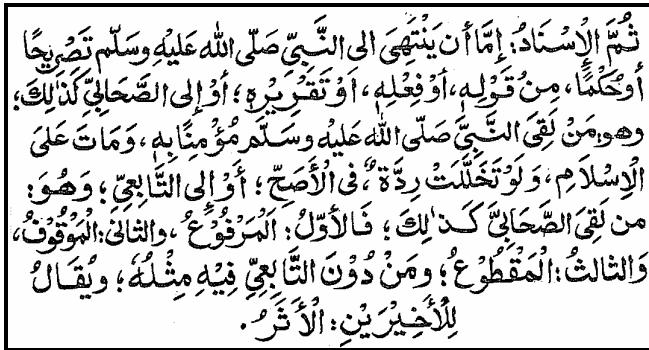 ثُمَّ الْإِسْنَادُ: إِمَّا أَن يَنْتَهِيَ الى النَّبِيِّ صَلَّى الله عَلَيْهِ وَسَلَّم تَصْرِيْحًا
أَوْحُكْمًا، مِنْ قَوْلِهِ، أَوْ فِعْلِهِ، اَوْ تَقْرِيْرِهِ؛ أَوْ إِلى الصَّحَابِيِّ كَذٰلِكَ؛
وهو: مَنْ لَقِيَ النَّبِيَّ صَلَّى اللهُ عَلَيْهِ وَسَلَّم مُؤْمِنًا بِهِ، وَمَاتَ عَلىَ
الْإِسْلَامِ، وَلَوْ تَخَلَّلَتْ رِدَّةٌ، فى الْأَصَحِّ؛ أَوْ إِلى التَّابِعِيِّ؛ وَهُوَ:
من لَقِيَ الصَّحَابِيَّ كَذٰلِكَ؛ فَالأَوَّلُ: اَلْمَرْفُوْعُ، والثانى: الْمَوْقُوْفُ،
وَالثالثُ: الْمَقْطُوْعُ؛ ومَنْ دُوْنَ التَّابِعِيِّ فِيْهِ مِثْلُهُ؛ ويُقَالُ
لِلْأَخِيْرَيْنِ: الْأَثَرُ.